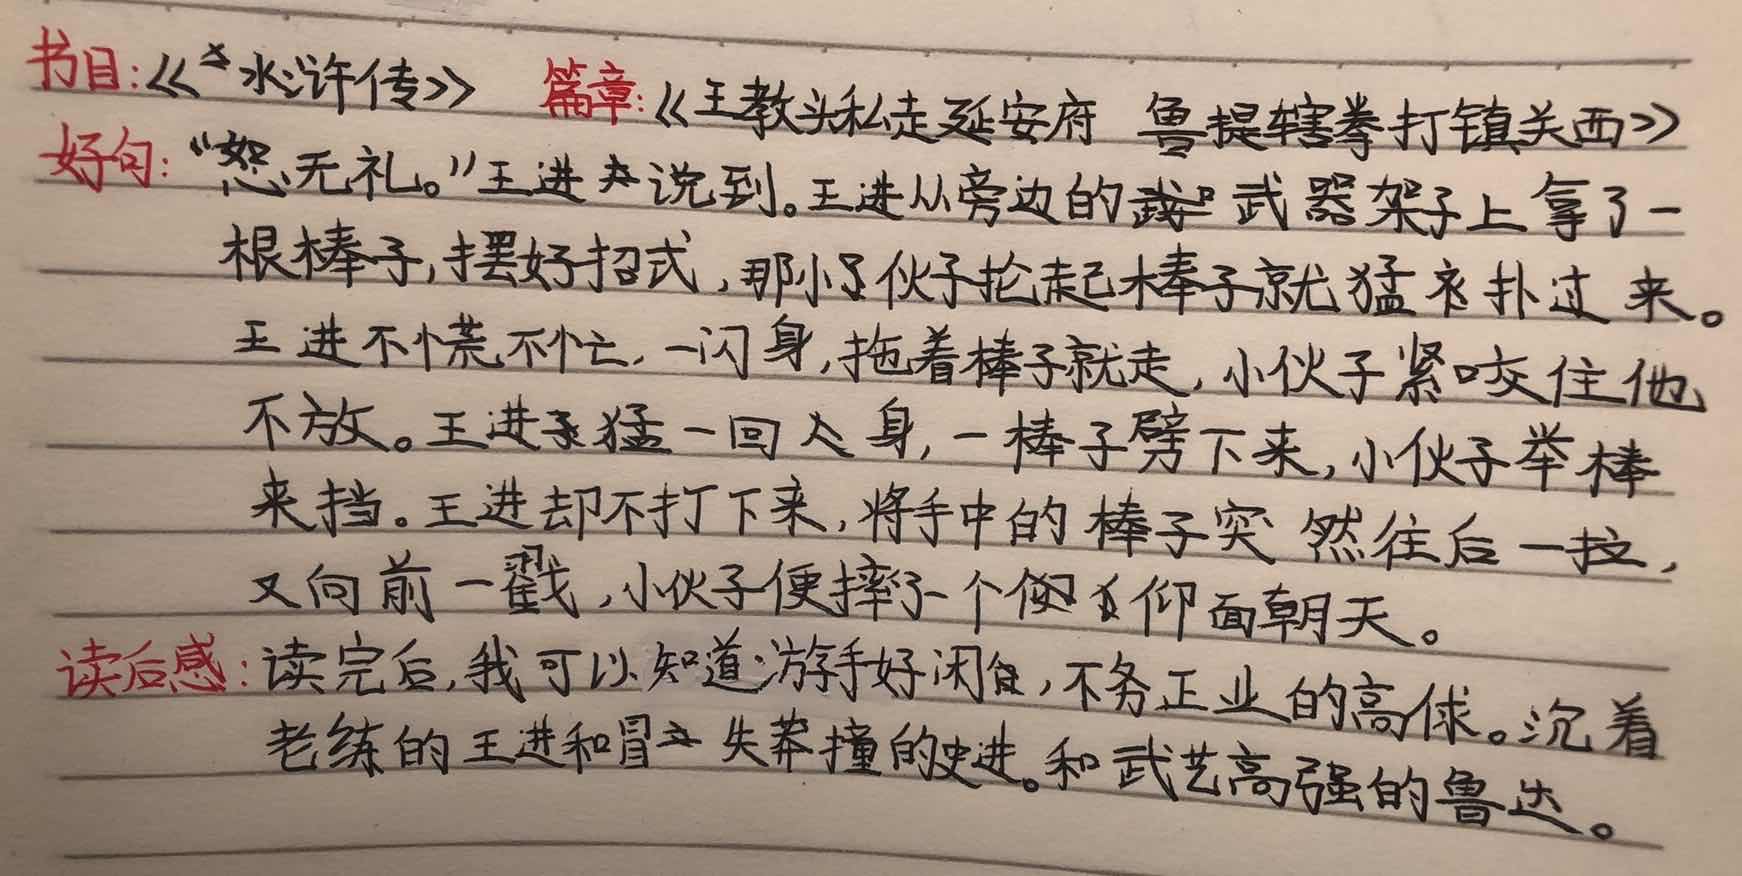 书目:《水浒传》 篇章:《王教头私走延安府 鲁提辖拳打镇关西》
好句:“恕无礼。”王进说到。王进从旁边的武器架子上拿了一
根棒子,摆好招式,那小伙子抡起棒子就猛扑过来。
王进不慌不忙,一闪身,拖着棒子就走,小伙子紧咬住他
不放。王进猛一回身,一棒子劈下来,小伙子举棒
来挡。王进却不打下来,将手中的棒子突然往后一拉,
又向前一戳,小伙子便摔了个仰面朝天。
读后感:读完后,我可以知道游手好闲,不务正业的高俅。沉着
老练的王进和冒失莽撞的史进。和武艺高强的鲁达。